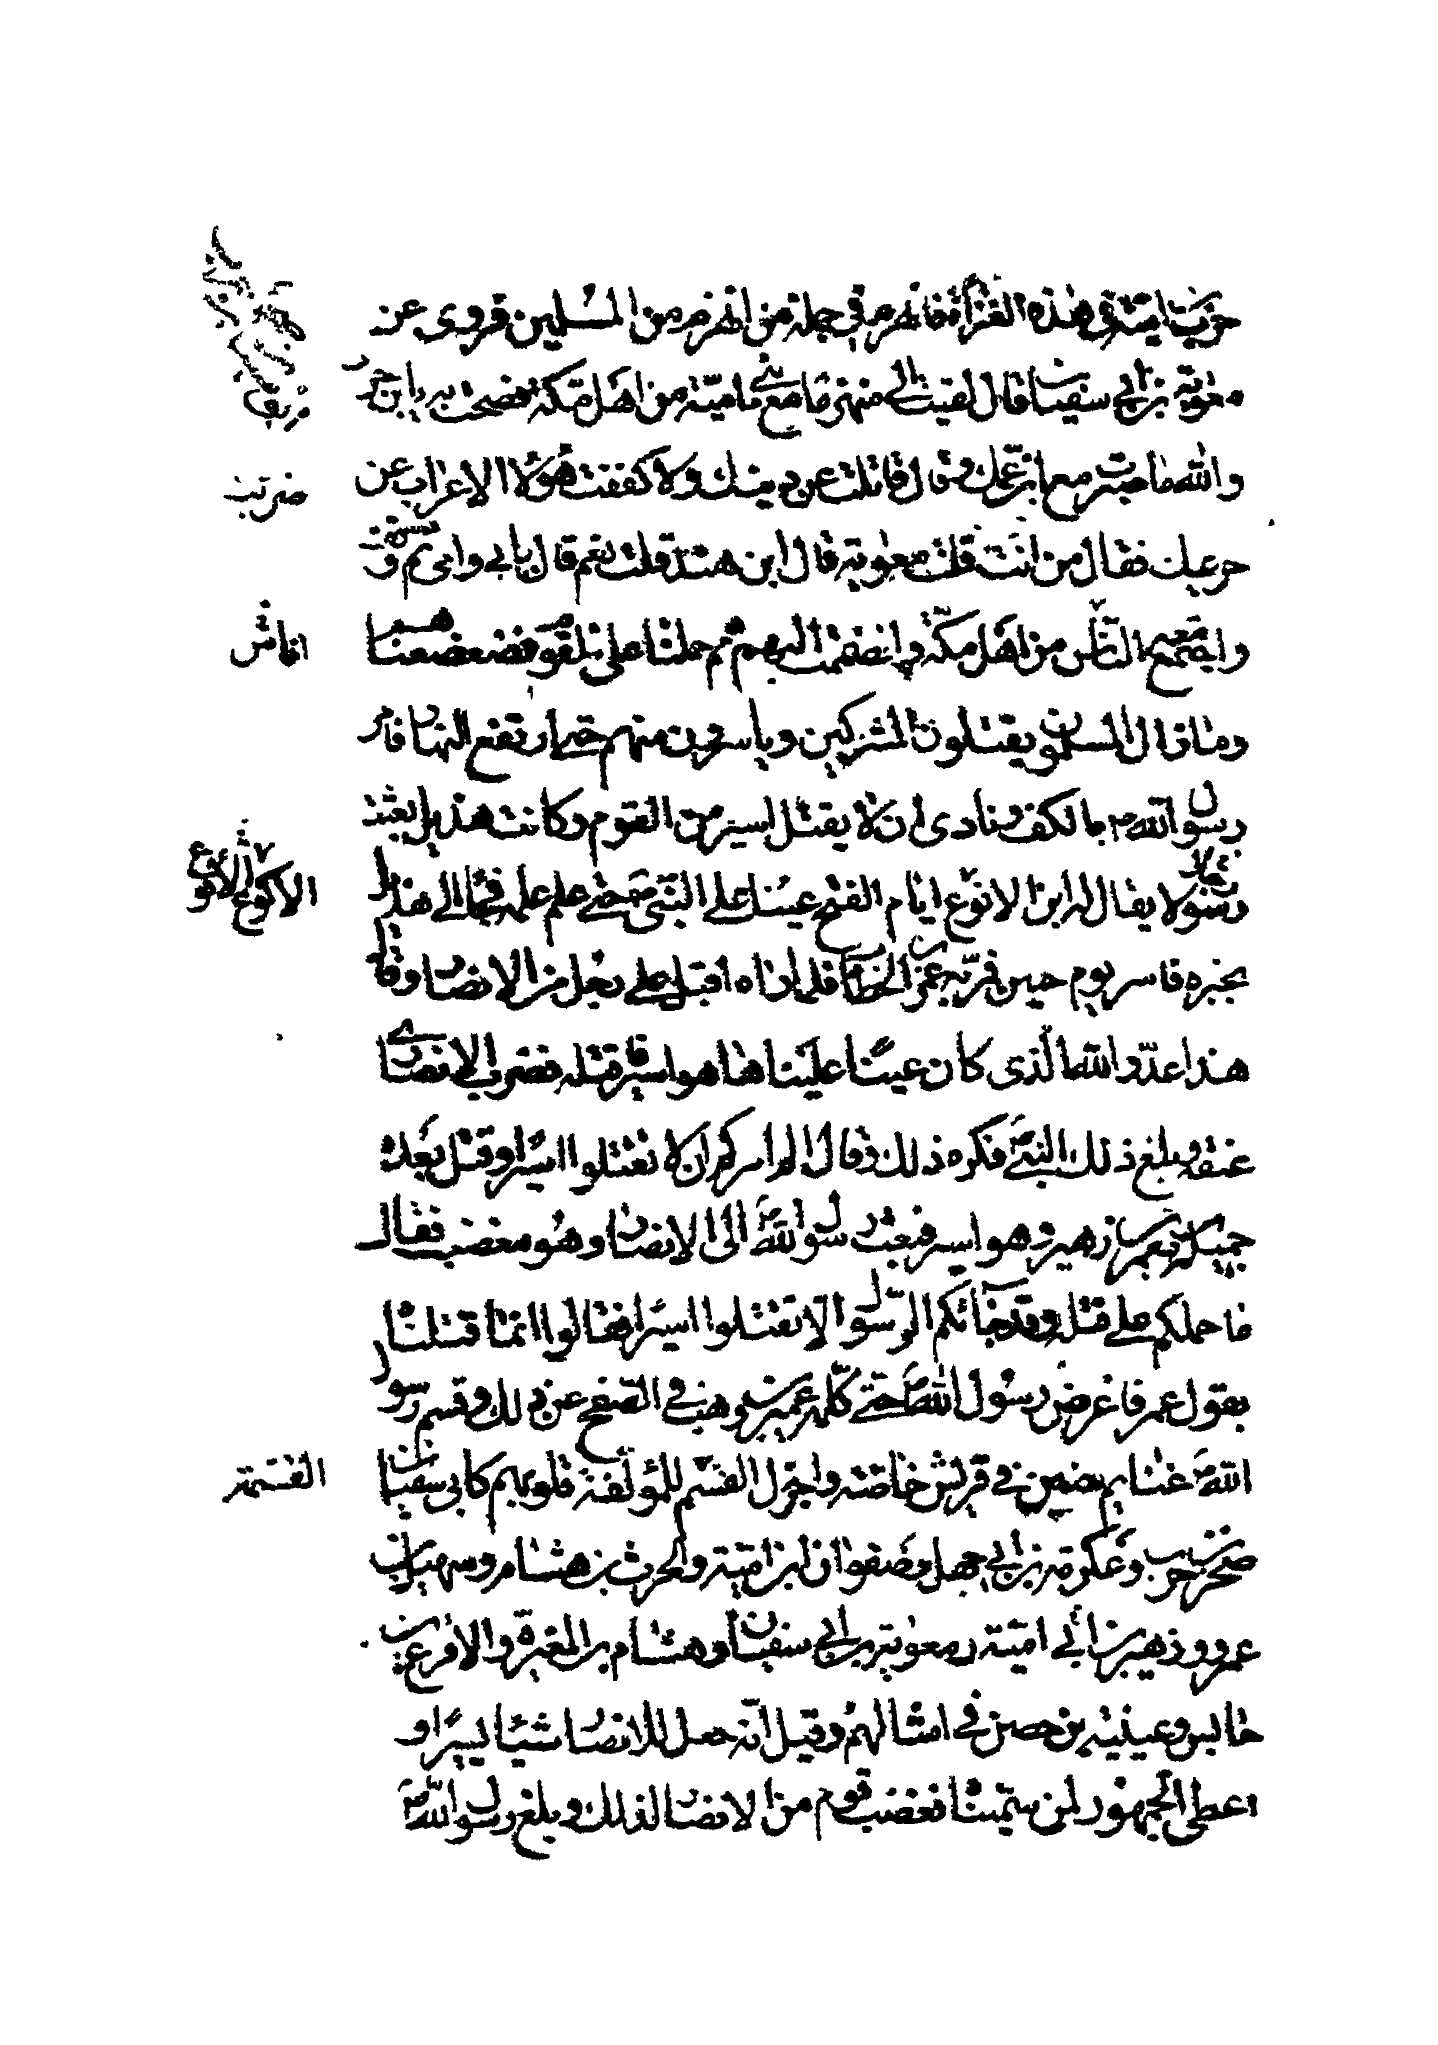 حرب بن امية في هذه الغزاة فانهزم في جملة من انهزم من المسلمين فروى عن
معوية بن ابي سفيان قال لقيت ابي منهزما مع بني امية من اهل مكة فصحت به يا ابن حرب
والله ما صبرت مع ابن عمك ولا قاتلت عن دينك ولا كففت هؤلاء الاعراب عن
حريمك فقال من انت قلت معوية قال ابن هند قلت نعم قال بابي وامي ثم وقف
واجتمع معه الناس من اهل مكة وانضممت اليهم ثم حملنا على القوم فضعضعناهم
وما زال المسلمون يقتلون المشركين وياسرون منهم حتى ارتفع النهار فامر
رسول الله ص بالكف ونادى ان لا يقتل اسير من القوم وكانت هذيل بعثت
رسولا يقال له ابن الانوع ايام الفتح عينا على النبي ص حتى علم علمه فجاء الى هذيل
بخبره فاسر يوم حنين فمر به عمر بن الخطاب فلما راه اقبل على رجل من الانصار وقال
هذا عدو الله الذي كان عينا علينا ها هو اسير فاقتله فضرب الانصاري
عنقه وبلغ ذلك النبي ص فكره ذلك وقال الم امركم ان لا تقتلوا اسيرا وقتل بعده
جميل بن معمر بن زهير وهو اسير فبعث رسول الله ص الى الانصار وهو مغضب فقال
ما حملكم على قتله وقد جائكم الرسول الا تقتلوا اسيرا فقالوا انما قتلنا
بقول عمر فاعرض رسول الله ص حتى كلمه عمير بن وهب في الصفح عن ذلك وقسم رسول
الله ص غنايم حنين في قريش خاصة واجزل القسم للمؤلفة قلوبهم كابي سفيان
صخر بن حرب وعكرمة بن ابي جهل وصفوان ابن امية والحرث بن هشام وسهيل بن
عمرو وزهير بن ابي امية ومعوية بن ابي سفيان وهشام بن المغيرة والاقرع بن
حابس وعيينة بن حصن في امثالهم وقيل انه جعل للانصار شيئا يسيرا و
اعطى الجمهور لمن سمينا فغضب قوم من الانصار لذلك وبلغ رسول الله ص
ضربت
الاكوع
القسمة